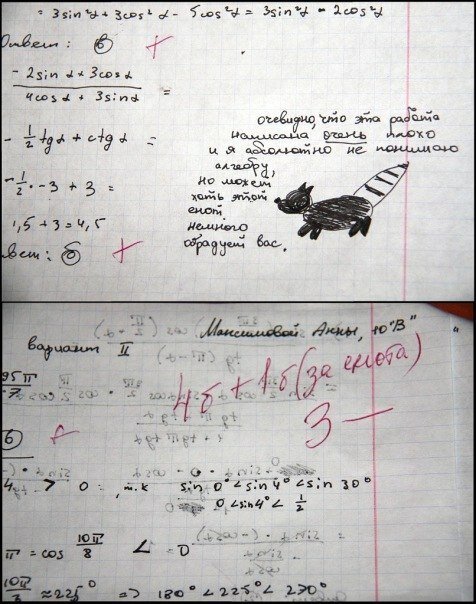 = 3sin²α + 3cos²α - 5cos²α = 3sin²α - 2cos²α
Ответ: в
-2sin α + 3cos α
4cos α + 3sin α
=
- 1/2 tg α + ctg α =
-1/2 · -3 + 3 =
1,5 + 3 = 4,5
вет: б
очевидно, что эта работа
написана очень плохо
и я абсолютно не понимаю
алгебру,
но может
хоть этот
енот
немного
обрадует вас.
Максимовой Анны, 10 "В"
вариант II
4б + 1б (за енота)
3 —
б
4 > 0 , т.к sin 0° < sin 4° < sin 30°
0 < sin 4° < 1/2
π = cos 10π/8 < 0
≈ 225° => 180° < 225° < 270°